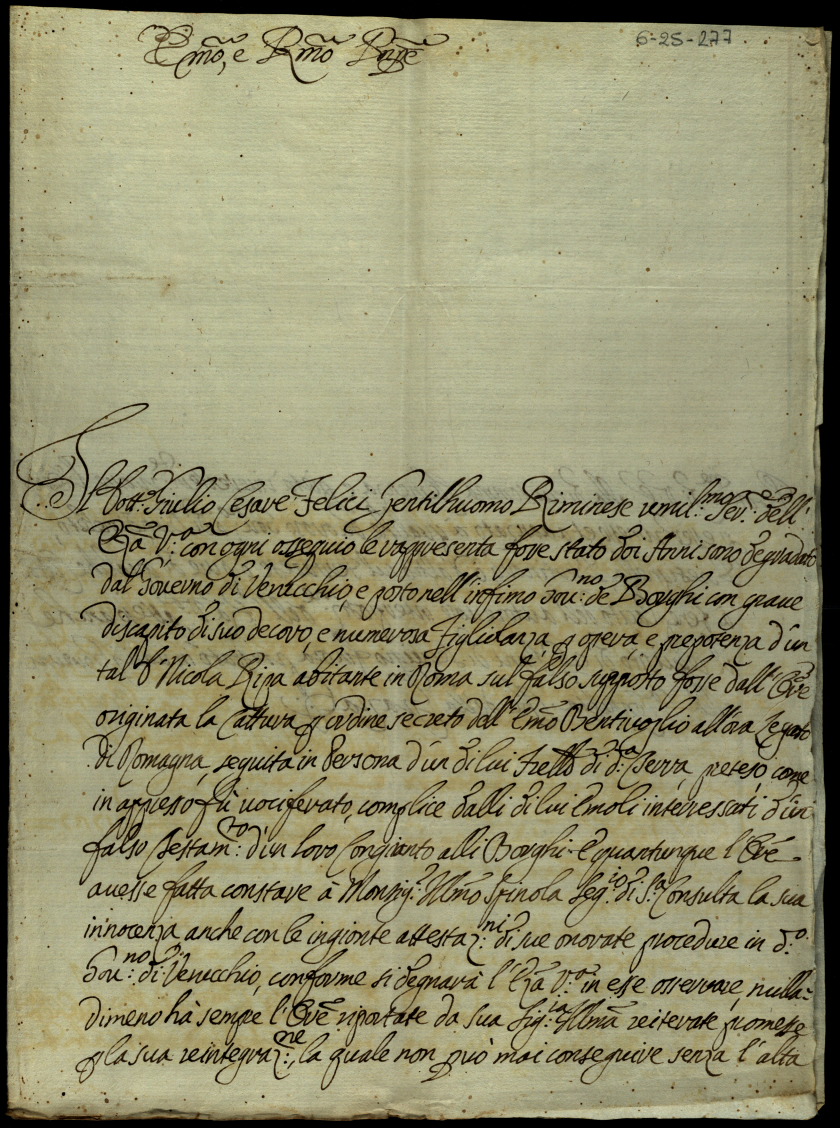 6-25-277
Emõ, e Rmõ Pnpẽ
Il Dott.r Giulio Cesare Felici Gentilhuomo Riminese umil.mo Ser.e dell'
Eza V.a con ogni ossequio le rappresenta fosse stato doi Anni sono degradato
dal Governo di Verucchio, e posto nell'infimo Gou:no de Borghi con grave
discapito di suo decoro, e numerosa figliolanza, p opera, e prepotenza d'un
tal Nicola Ripa abitante in Roma sul falso supposto fosse dall' Orẽ
originata la Cattura p ordine secreto dell' Emõ Bentivoglio allora Legato
di Romagna, seguita in Persona d'un di lui frello di d.a Terra, preteso come
in appresso fù vociferato, complice dalli di lui Emoli interessati d'un
falso Testam:to d'un loro Congionto alli Borghi. E quantunque l'Orẽ
auesse fatta constare à Monsig.r Illmõ Spinola Seg.rio di S.a Consulta la sua
innocenza anche con le ingionte attestaz:ni di sue onorate procedure in d.o
Gou:no di Verucchio, conforme si degnarà l'Eza V.a in esse osservare, nulla-
dimeno hà sempe l'Orẽ riportate da sua Sig:ia Illmã reiterate promesse
p la sua reintegraz:ne, la quale non può mai conseguire senza l'alta